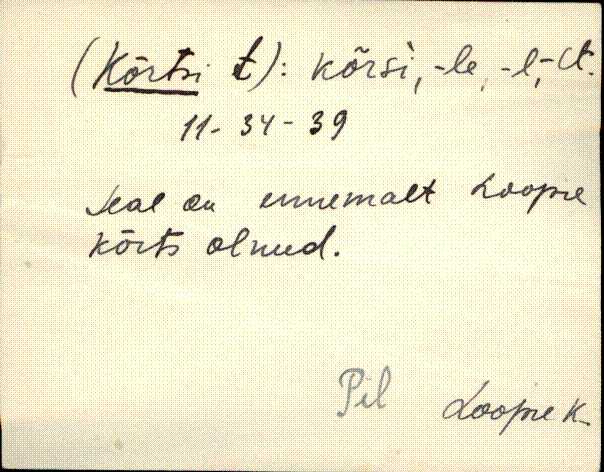 (Kõrtsi t): kõrsi, -le, -l, -lt.
11-34-39
Seal on ennemalt Loopre
kõrts olnud.
Pil Loopre k.